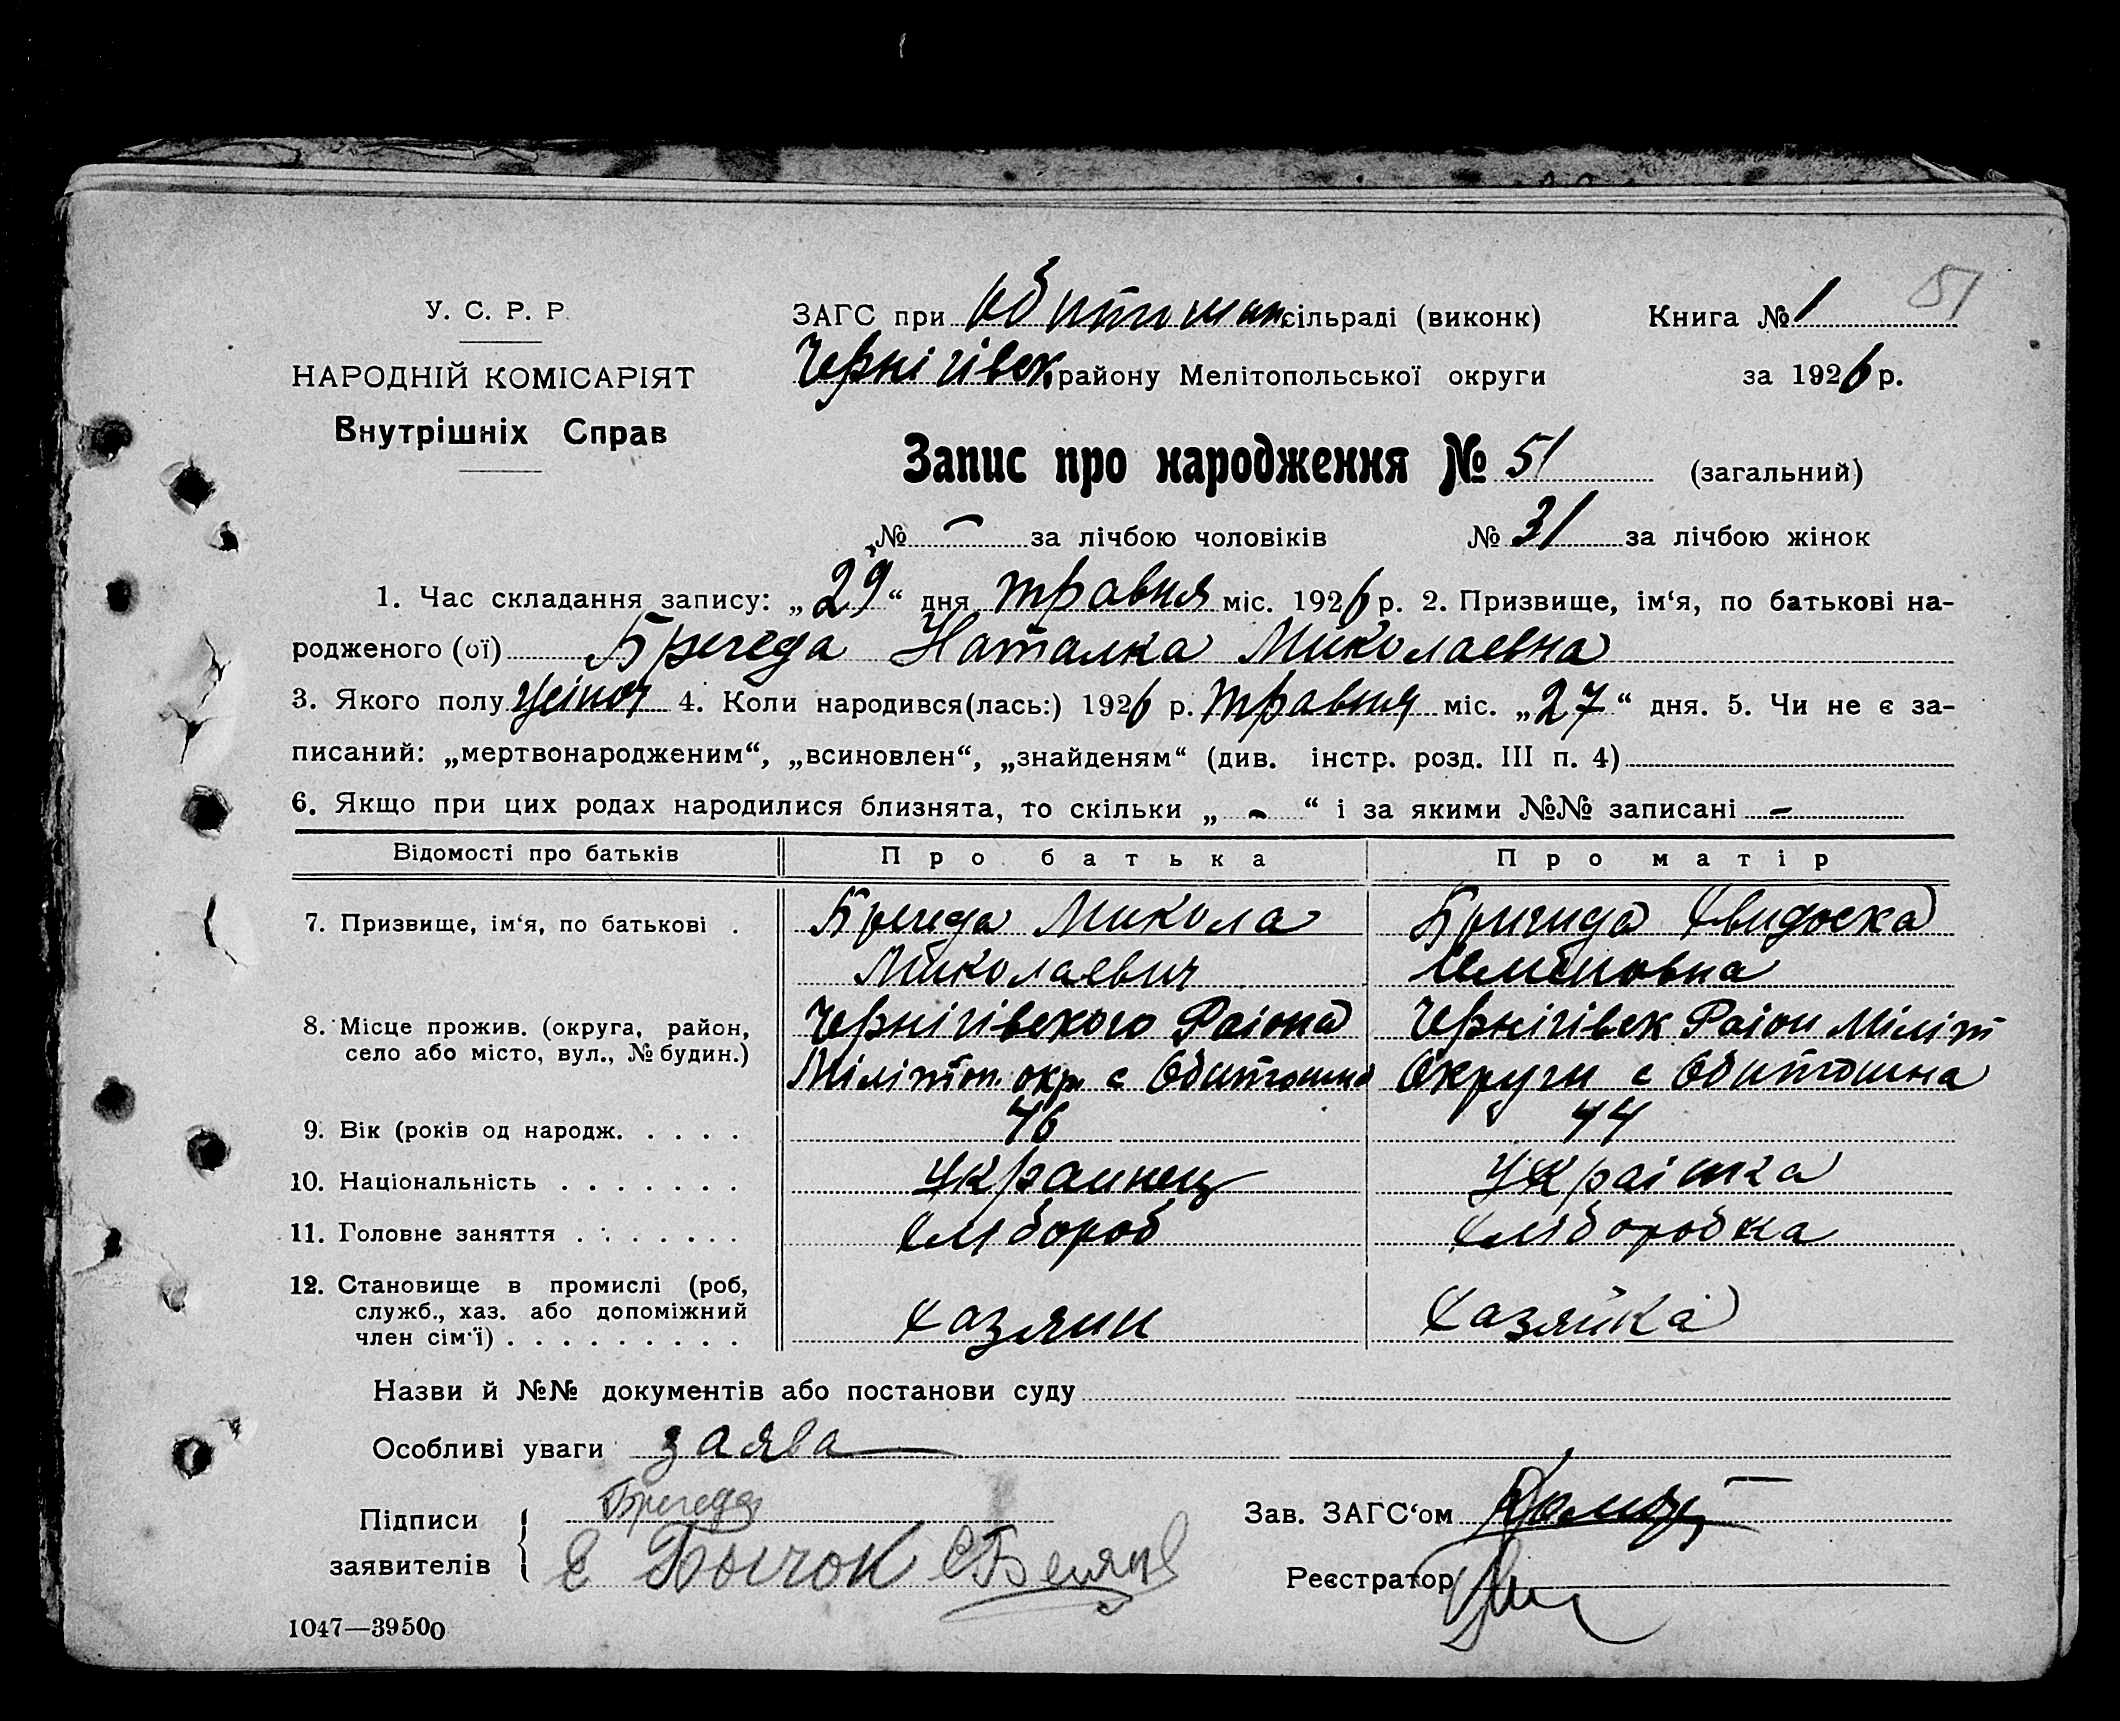 51
У. С. Р. Р.
НАРОДНІЙ КОМІСАРІЯТ
Внутрішніх Справ
ЗАГС при Обиточан сільраді (виконк) Книга № 1
Чернігівськ району Мелітопольської округи за 1926 р.
Запис про народження № 51 (загальний)
№ — за лічбою чоловіків № 31 за лічбою жінок
1. Час складання запису: „29“ дня травня міс. 1926 р. 2. Призвище, ім‘я, по батькові на-
родженого (ої) Брегеда Наталка Миколаевна
3. Якого полу жіноч 4. Коли народився(лась:) 1926 р. травня міс. „27“ дня. 5. Чи не є за-
писаний: „мертвонародженим“, „всиновлен“, „знайденям“ (див. інстр. розд. III п. 4)
6. Якщо при цих родах народилися близнята, то скільки „ - “ і за якими №№ записані -
Відомості про батьків Про батька Про матір
7. Призвище, ім‘я, по батькові . Брегеда Микола Бригида Явидоска
Миколаевич Семеновна
8. Місце прожив. (округа, район, Чернігівского Раіона Чернігівск Раіон Міліт
село або місто, вул., № будин.) Мілітоп. окр. с Обиточна Округи с Обиточна
9. Вік (років од народж. . . . . 46 44
10. Національність . . . . . . . Украинец Украінка
11. Головне заняття . . . . . . . Хлібороб Хліборобка
12. Становище в промислі (роб,
служб., хаз. або допоміжний Хазяин Хазяйка
член сім‘ї) . . . . . . . . .
Назви й №№ документів або постанови суду
Особливі уваги заява
Підписи Брегеда Зав. ЗАГС‘ом
заявителів Е Бычок С Беляев Реєстратор
1047—39500